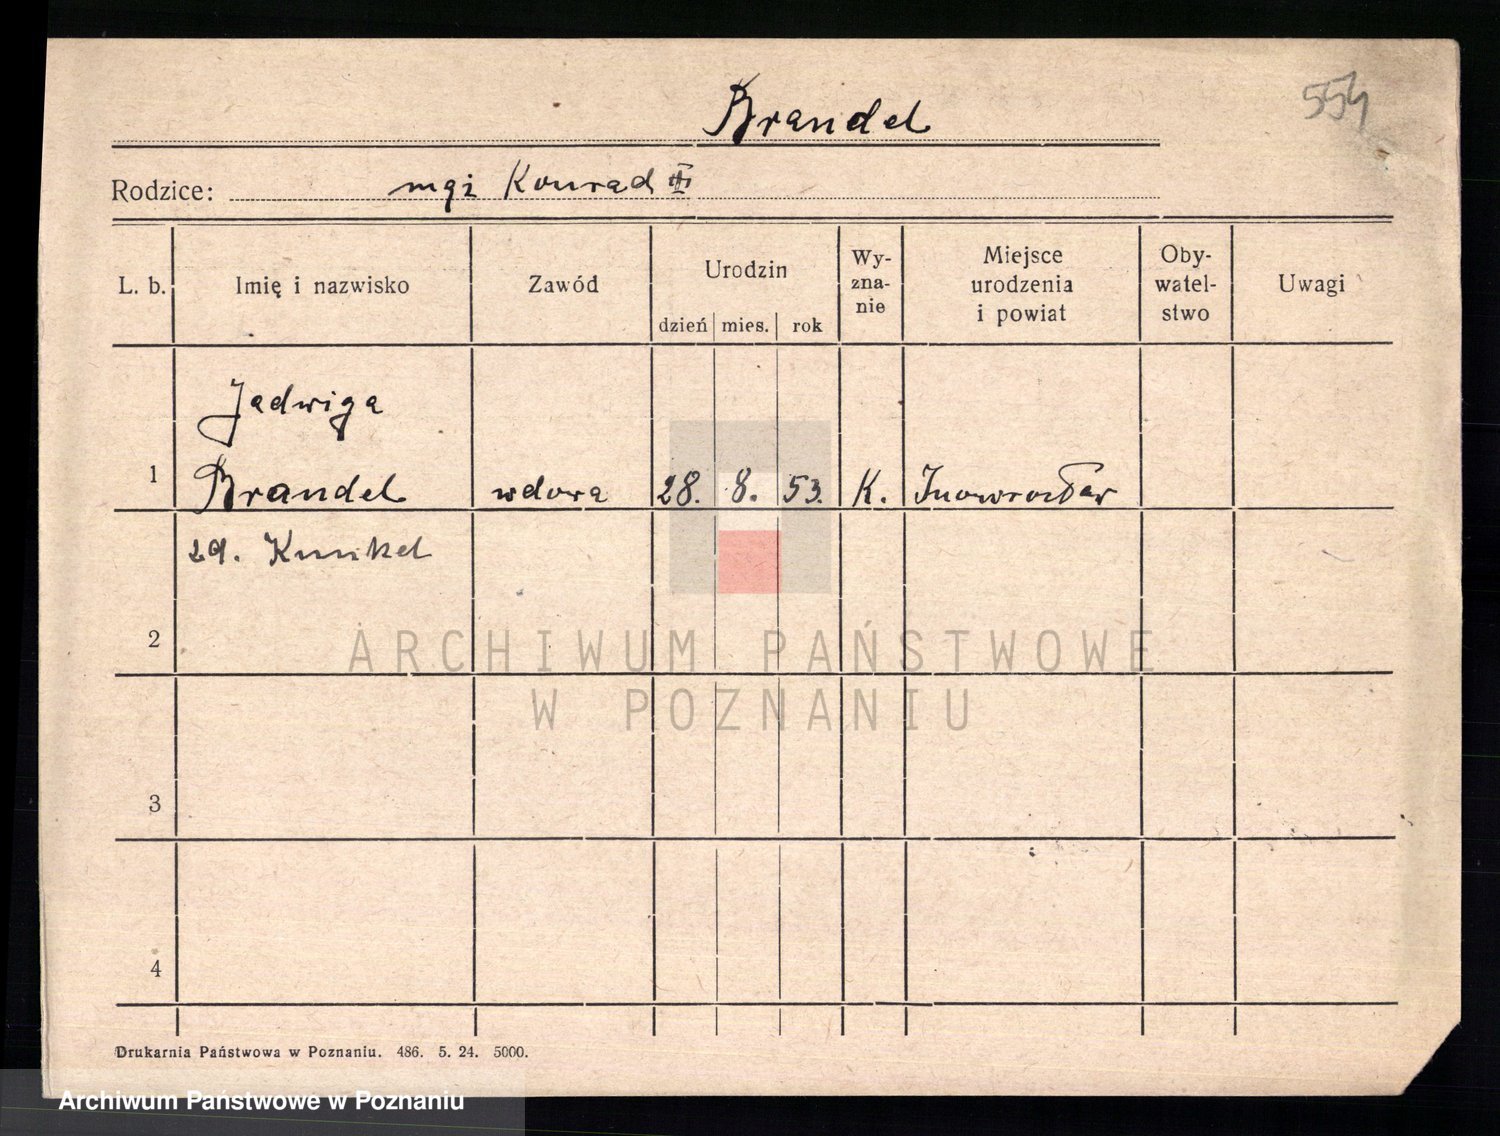 554
Brandel
Rodzice: mąż Konrad
L. b. Imię i nazwisko Zawód Urodzin dzień mies. rok Wy-zna-nie Miejsce urodzenia i powiat Oby-watel-stwo Uwagi
Jadwiga
1 Brandel wdowa 28. 8. 53. K. Inowrocław
Kunkel
2
3
4
ARCHIWUM PAŃSTWOWE
W POZNANIU
Drukarnia Państwowa w Poznaniu. 486. 5. 24. 5000.
Archiwum Państwowe w Poznaniu